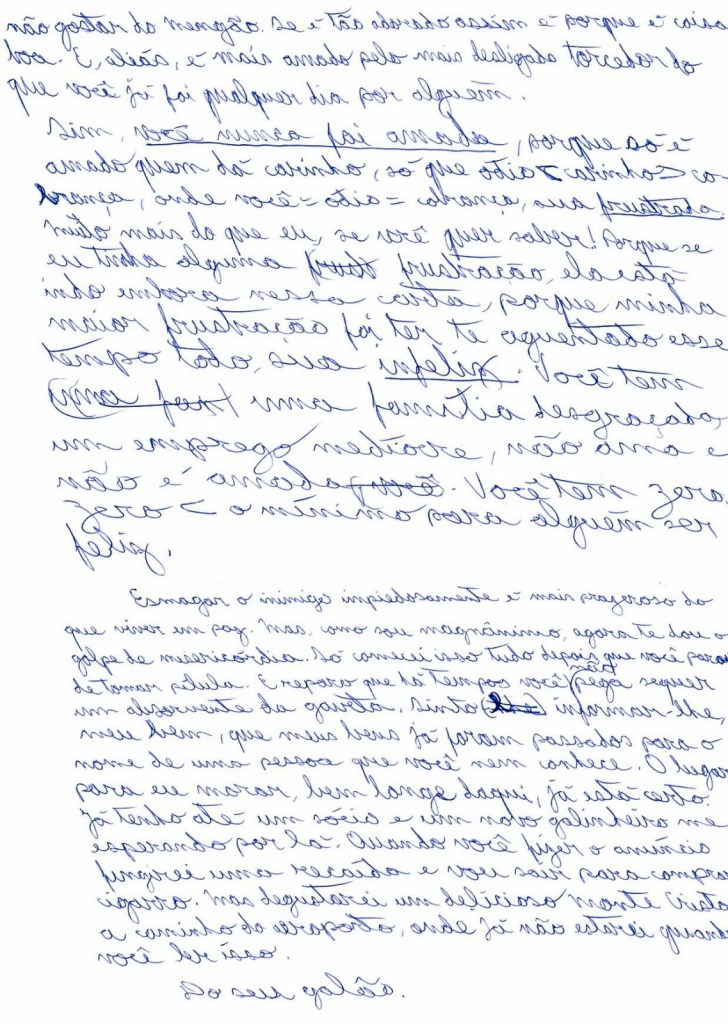 não gostar do mengão. Se é tão adorado assim é porque é coisa
boa. E, aliás, é mais amado pelo mais desligado torcedor do
que você já foi qualquer dia por alguém.
Sim, você nunca foi amada, porque só é
amado quem dá carinho, só que odia < carinho > co-
brança, onde você = odia = cobrança, sua frustrada
muto mais do que eu, se você quer saber! Porque se
eu tinha alguma frustração, ela está
indo embora nessa carta, porque minha
maior frustração foi ter te aguentado esse
tempo todo, sua infeliz. Você tem
(uma fam) uma família desgraçada,
um emprego medíocre, não ama e
não é amada (você. Você tem zero.
Zero < o mínimo para alguém ser
feliz.
Esmagar o inimigo impiedosamente é mais prazeroso do
que viver em paz. Mas, como sou magnânimo, agora te dou o
golpe de misericórdia. Só comecei isso tudo depois que você parou
de tomar pílula. E repara que há tempos você não pega sequer
um absorvente da gaveta. Sinto (lhe) informar-lhe,
meu bem, que meus bens já foram passados para o
nome de uma pessoa que você nem conhece. O lugar
para eu morar, bem longe daqui, já está certo.
Já tenho até um sócio e um novo galinheiro me
esperando por lá. Quando você fizer o anúncio
fingirei uma recaída e vou sair para comprar
cigarro. Mas degustarei um delicioso Monte Cristo
a caminho do aeroporto, onde já não estarei quando
você ler isso.
Do seu galão.